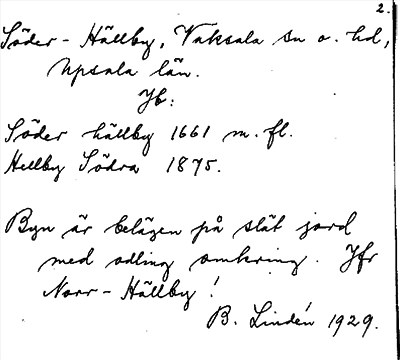 2.
Söder - Hällby, Vaksala sn o. hd,
Upsala län.
Jb:
Söder hällby 1661 m. fl.
Hellby Södra 1875.
Byn är belägen på slät jord
med odling omkring. Jfr
Norr - Hällby!
B. Lindén 1929.